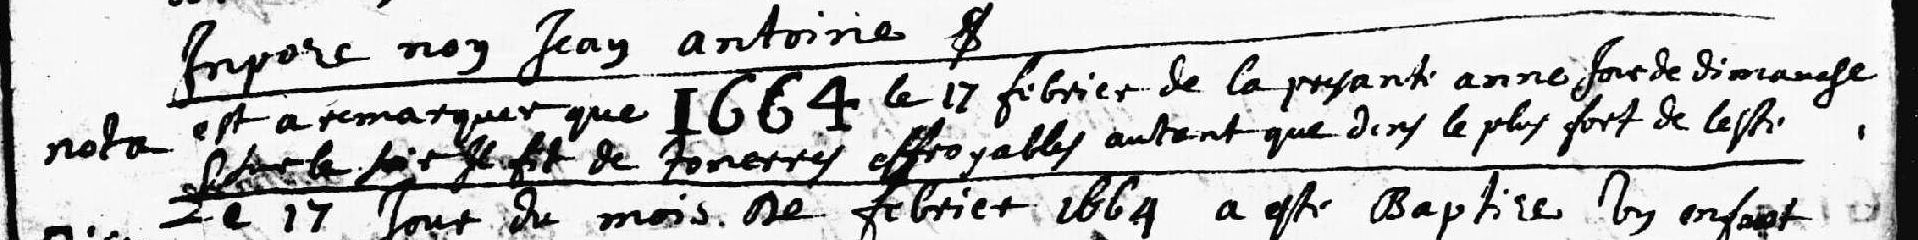 Inpoze non Jean antoine
1664
nota est a remarquer que le 17 febrier de la presante anne Jour de dimanche
sur le soir Il fit de tonerres effroyables autant que dens le plus fort de leste
Le 17 Jour du mois De febrier 1664 a este Baptize Un enfant